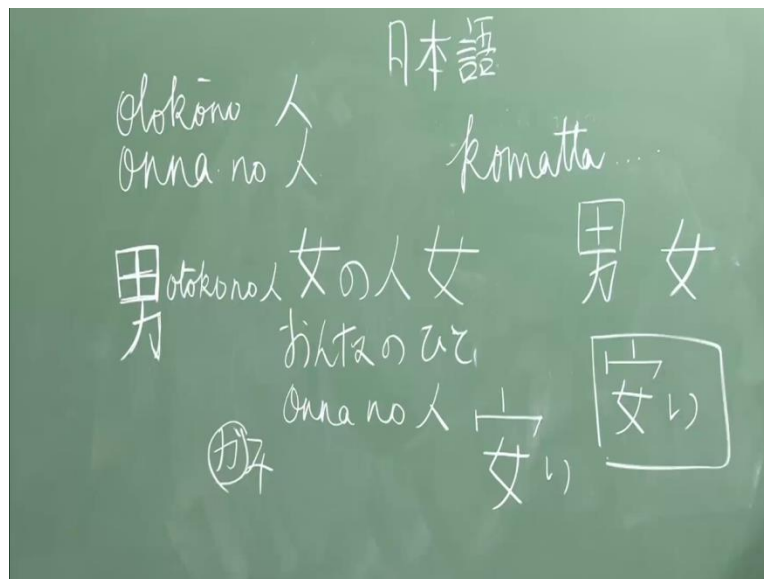 日本語
otokōno 人
onna no 人
komatta....
男 otokono人 女の人 女
男 女
おんなのひと
onna no 人
安い
安い